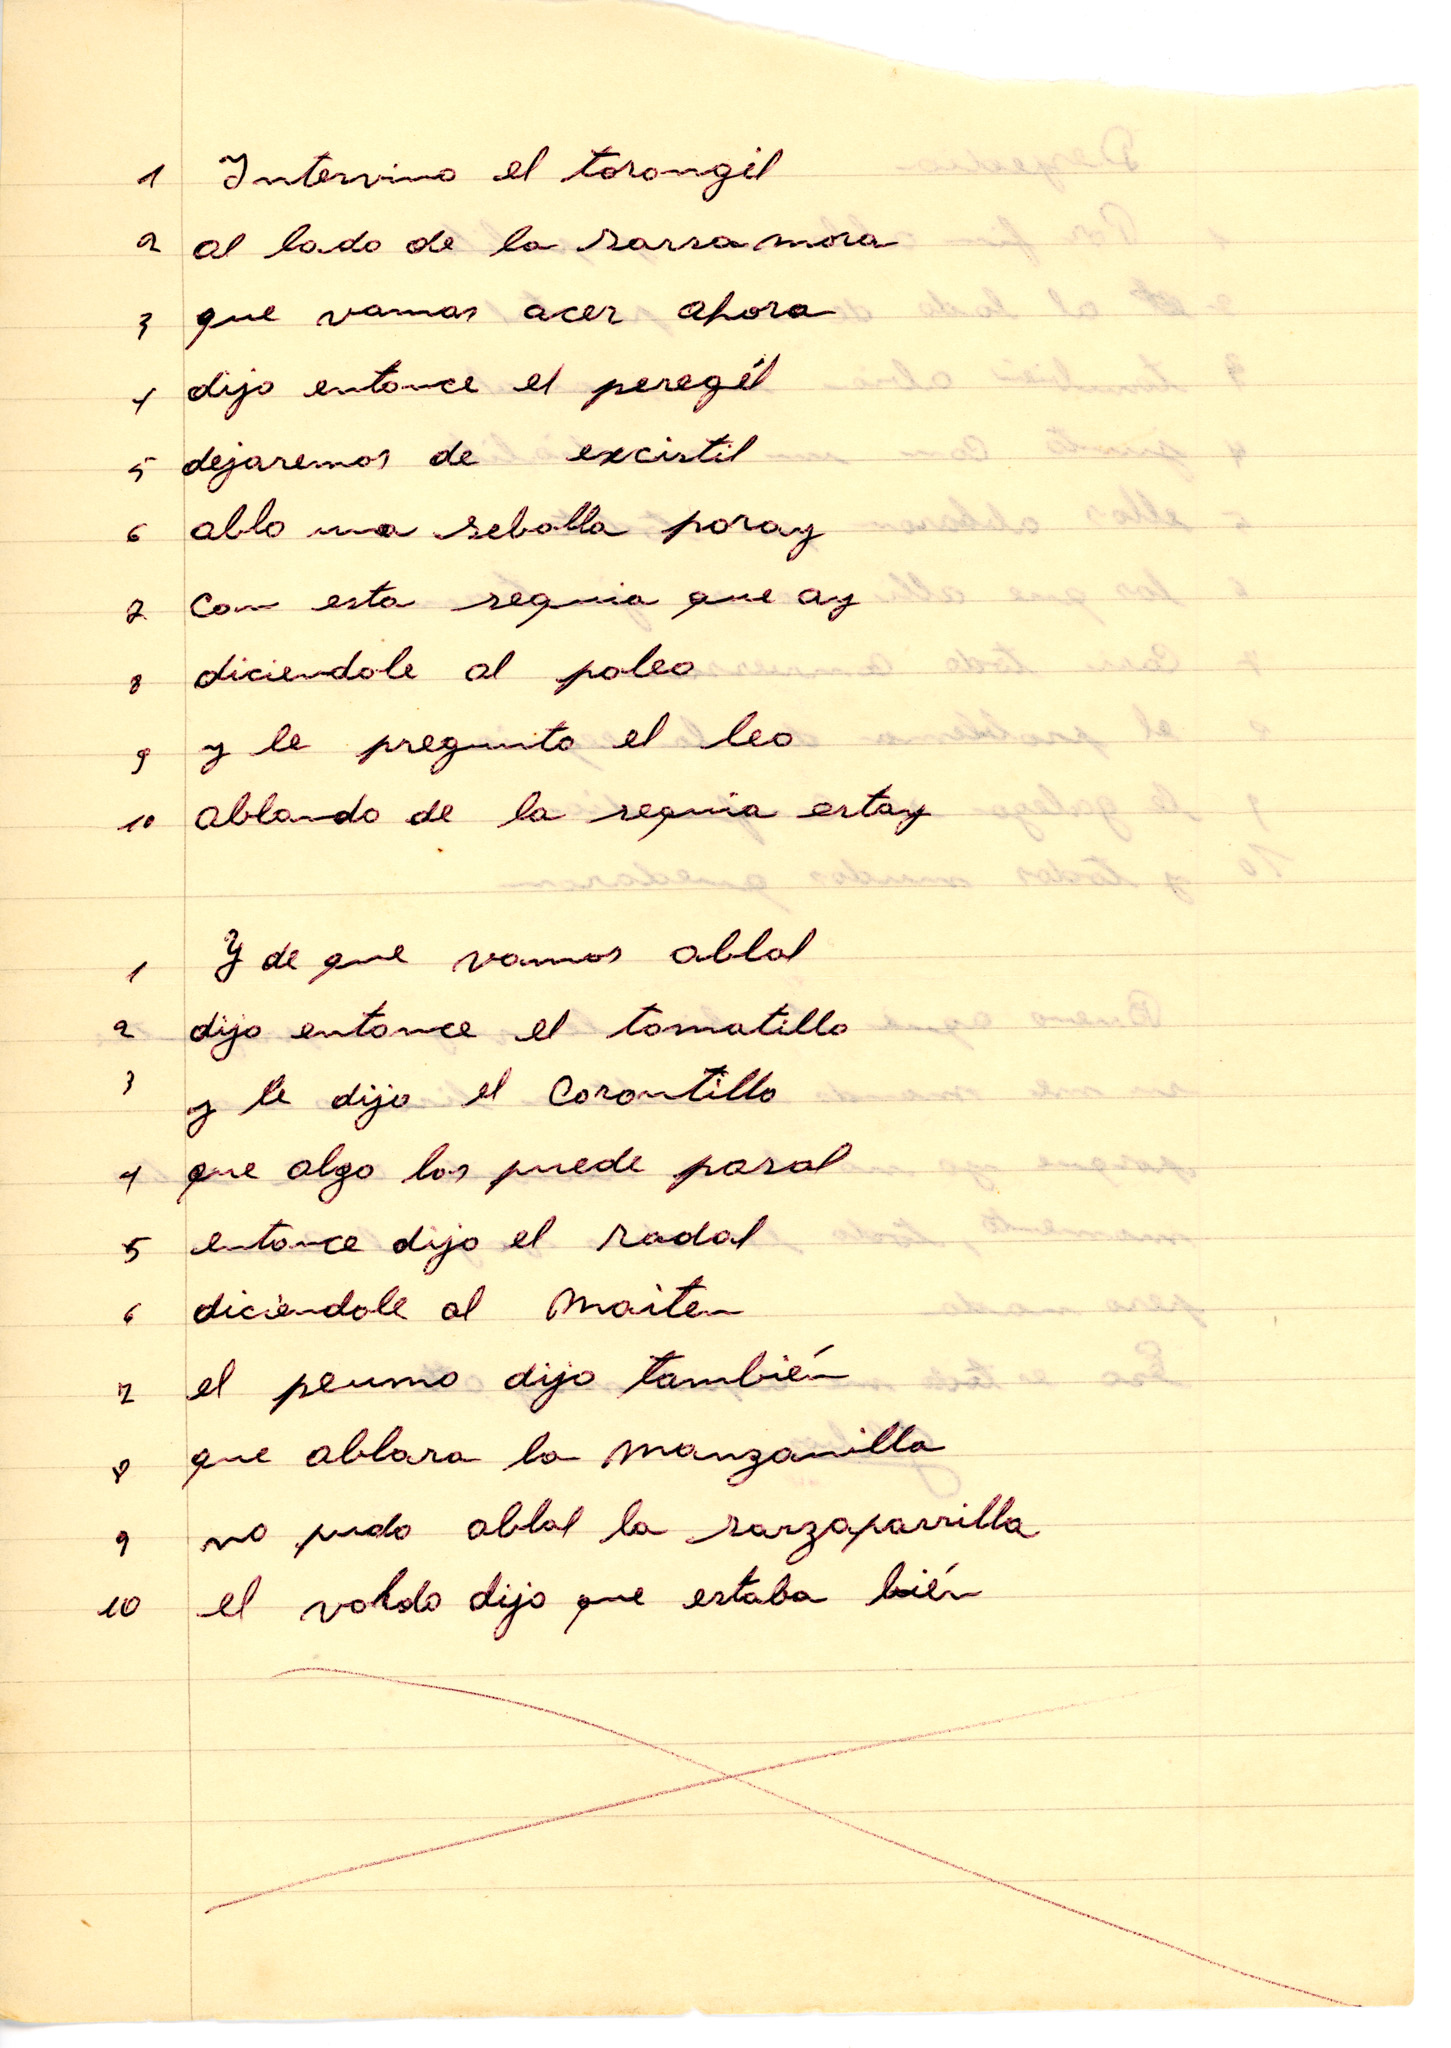 1 Intervino el torongil
2 al lado de la sarsamora
3 que vamos acer ahora
4 dijo entonce el peregil
5 dejaremos de excistil
6 ablo una sebolla poray
7 con esta sequia que ay
8 diciendole al poleo
9 y le pregunto el leo
10 ablando de la sequia estay
1 Y de que vamos ablal
2 dijo entonce el tomatillo
3 y le dijo el Corontillo
4 que algo los puede pasal
5 entonce dijo el radal
6 diciendole al Maiten
7 el peumo dijo también
8 que ablara la manzanilla
9 no pudo ablal la sarzaparrilla
10 el voldo dijo que estaba bién